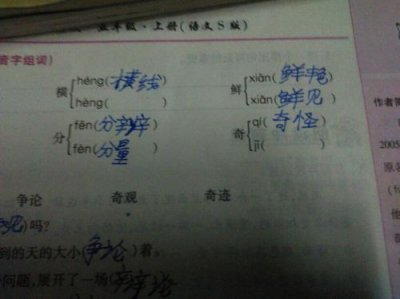 五年级·上册(语文S版)
音字组词)
héng(横线) xiān(鲜艳)
横 鲜
hèng( ) xiǎn(鲜见)
fēn( qí(奇怪)
分 奇
fèn(分量) jī( )
争论 奇观 奇迹
)吗?
到的天的大小(争论)着。
问题,展开了一场(
作者简
2005
原名
他